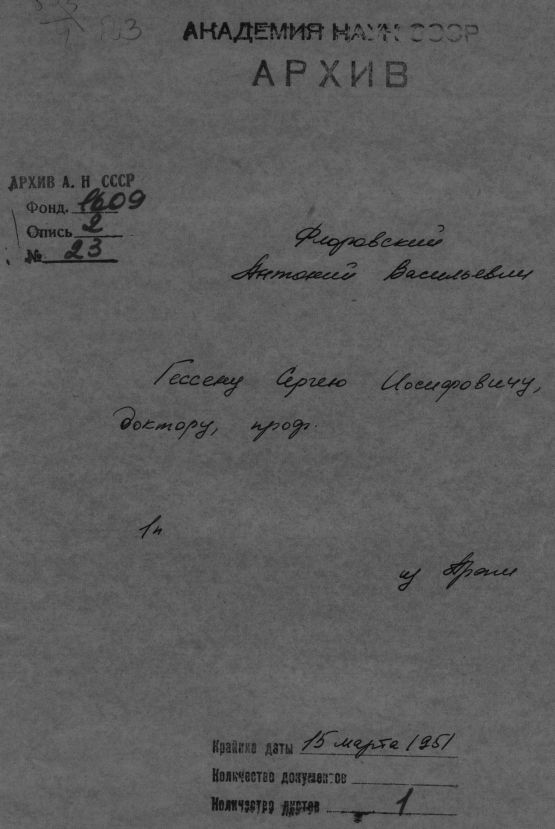 АКАДЕМИЯ НАУК СССР
АРХИВ
АРХИВ А. Н СССР
Фонд. 1609
Опись 2
№ 23
Флоровский
Антоний Васильевич
Гессену Сергею Иосифовичу,
доктору, проф.
1п
из Праги
Крайние даты 15 марта 1951
Количество документов
Количество листов 1